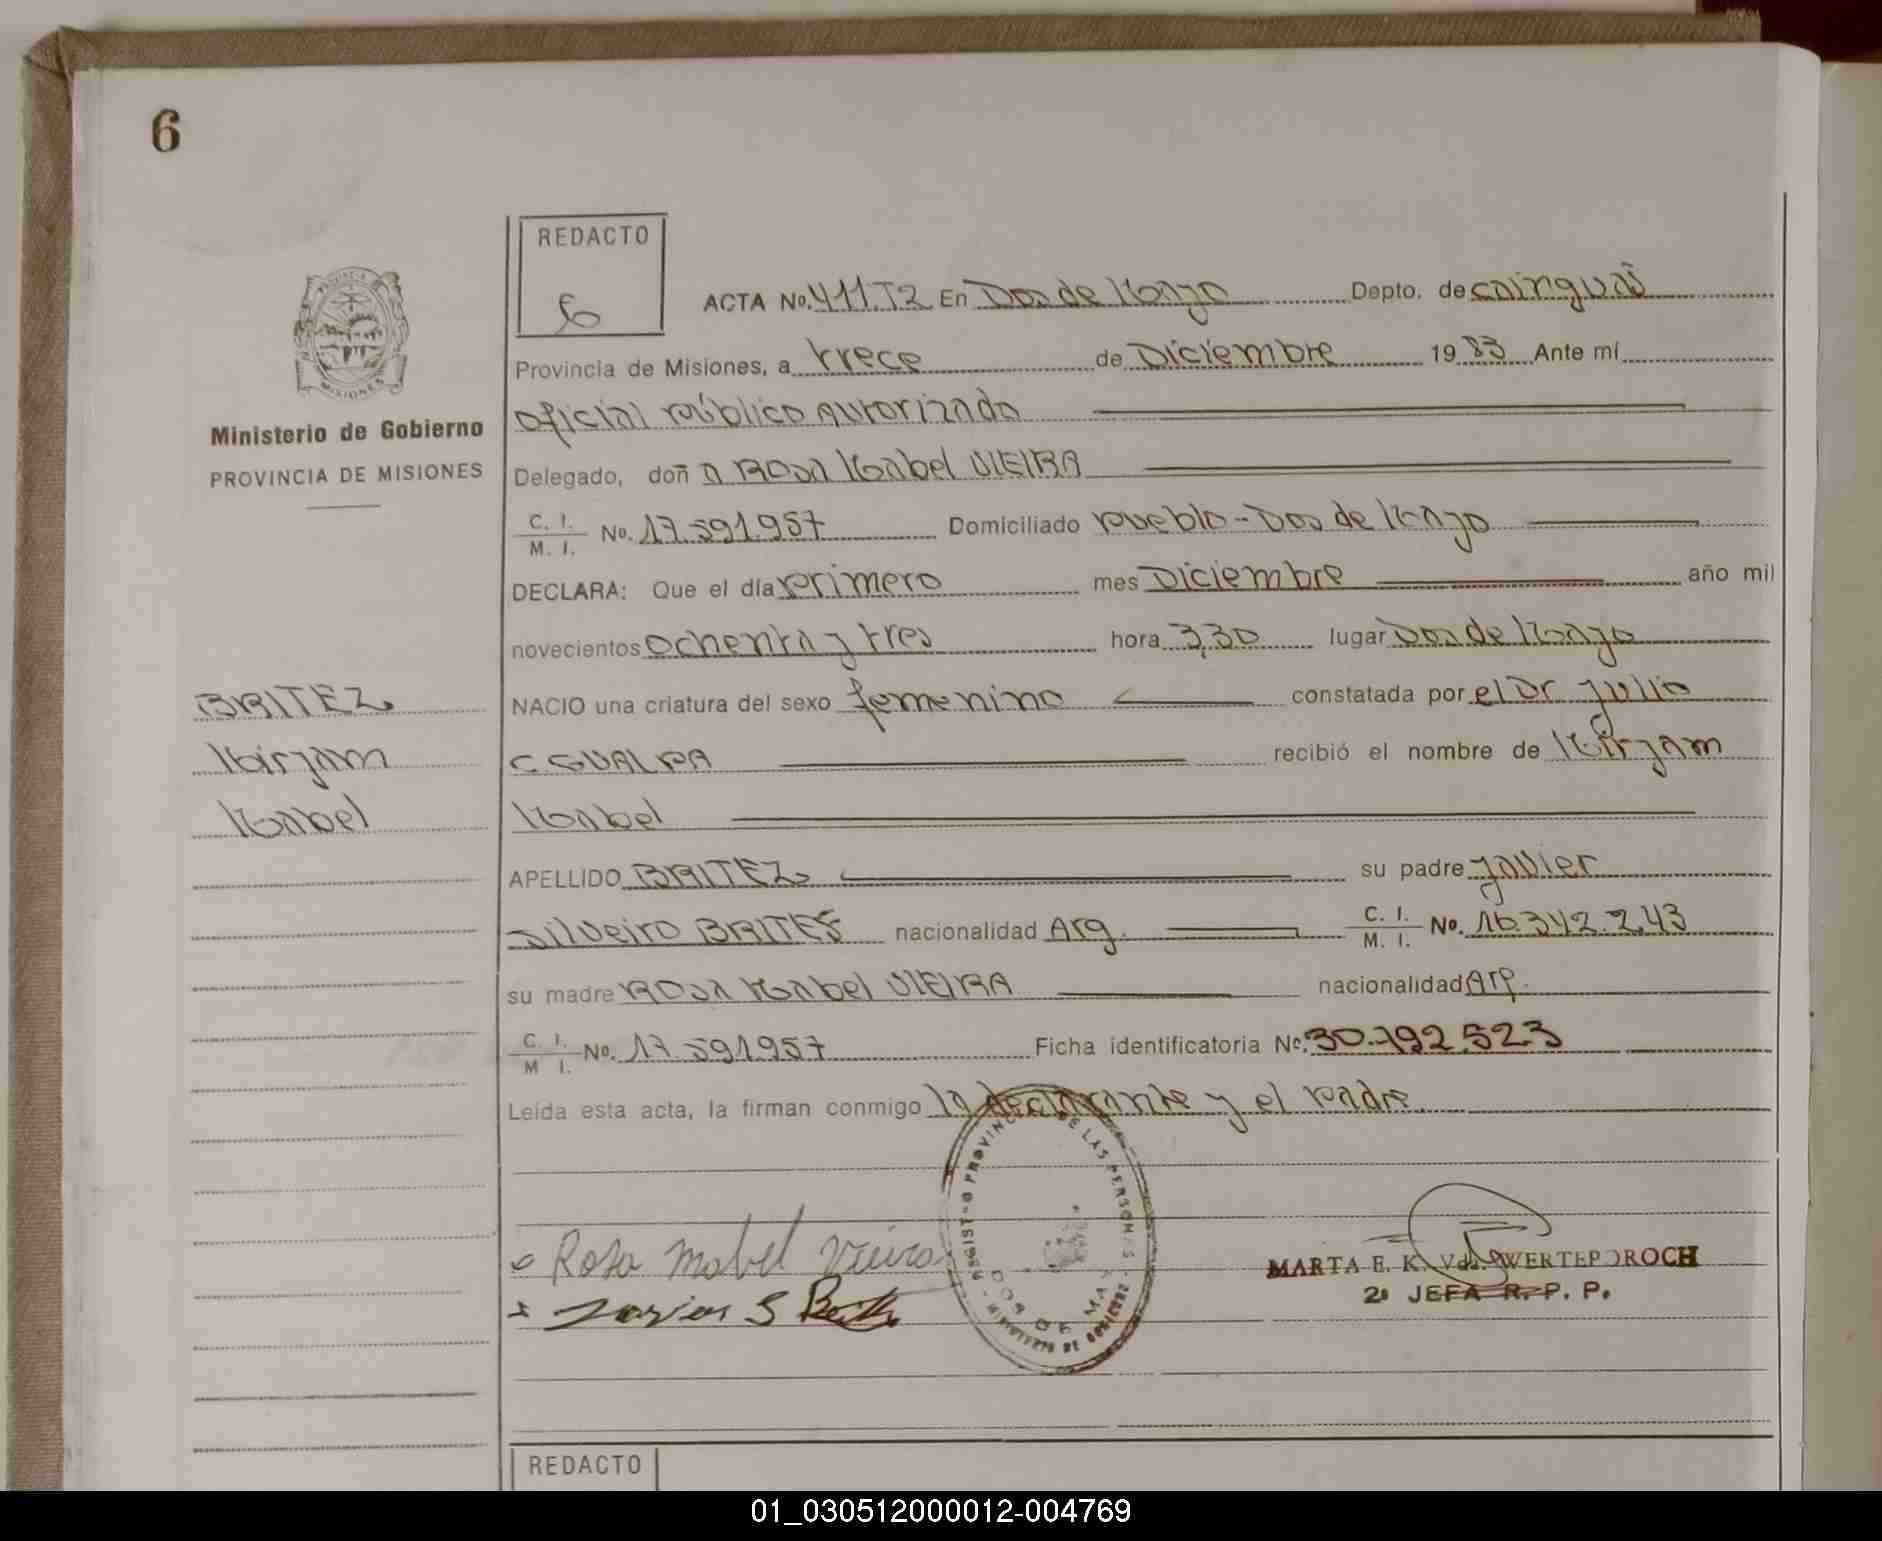 6
REDACTO
6
ACTA No. 411.T2 En Dos de Mayo Depto. de Cainguas
Provincia de Misiones, a trece de Diciembre 1983 Ante mí
Oficial Público Autorizado
Ministerio de Gobierno
PROVINCIA DE MISIONES
Delegado, doñ a Rosa Mabel VIEIRA
C. I.
M. I. No. 17.591.957 Domiciliado Pueblo - Dos de Mayo
DECLARA: Que el día Primero mes Diciembre año mil
novecientos Ochenta y tres hora 3,30 lugar Dos de Mayo
NACIO una criatura del sexo femenino constatada por el Dr. Julio
C GUALPA recibió el nombre de Mirjam
Mabel
BRITEZ
Mirjam
Mabel
APELLIDO BRITEZ su padre Javier
Silveiro BRITES nacionalidad Arg. C. I.
M. I. No. 16.342.243
su madre Rosa Mabel VIEIRA nacionalidad Arg.
C. I.
M I. No. 17.591.957 Ficha identificatoria No. 30.792.523
Leída esta acta, la firman conmigo la declarante y el Padre.
Rosa Mabel Vieira
MARTA E. K. V
2º JEFA R. P. P.
REDACTO
01_030512000012-004769